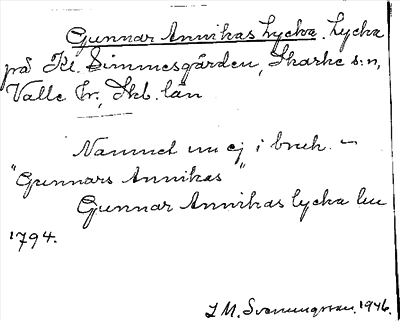 Gunnar Annikas Lycka. Lycka
på Kl. Simmesgården, Skarke s:n,
Valle hr., Skb. län
Namnet nu ej i bruk. –
"Gunnars Annikas"
Gunnar Annikas lycka
1794.
I. M. Svenungsson. 1946.